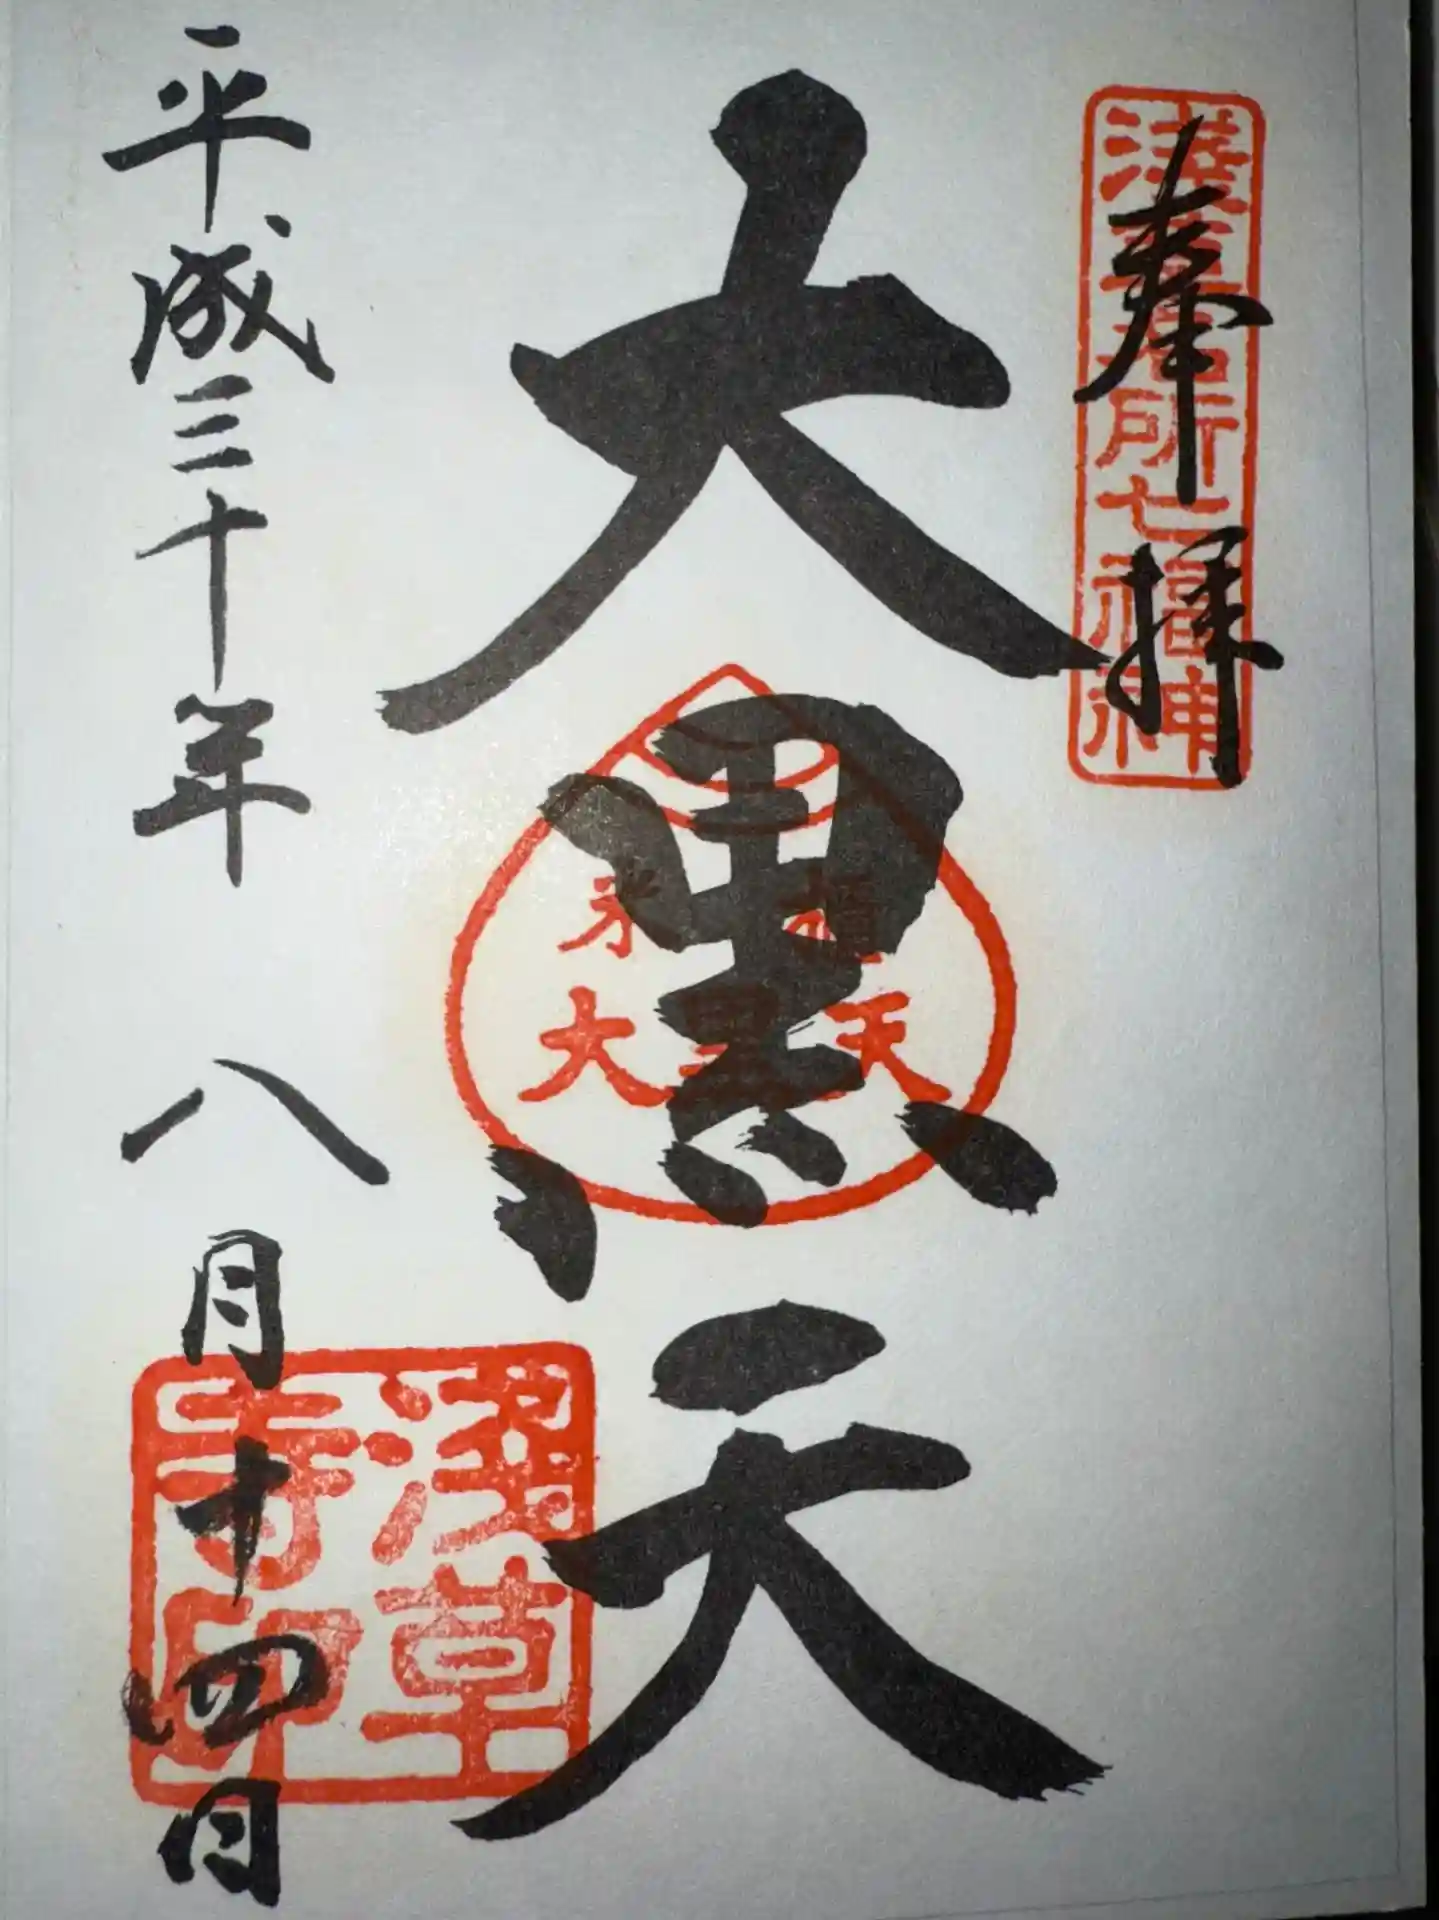 奉拝
淺草名所七福神
大黒天
米福
大黒天
平成三十年八月十四日
淺草
寺印